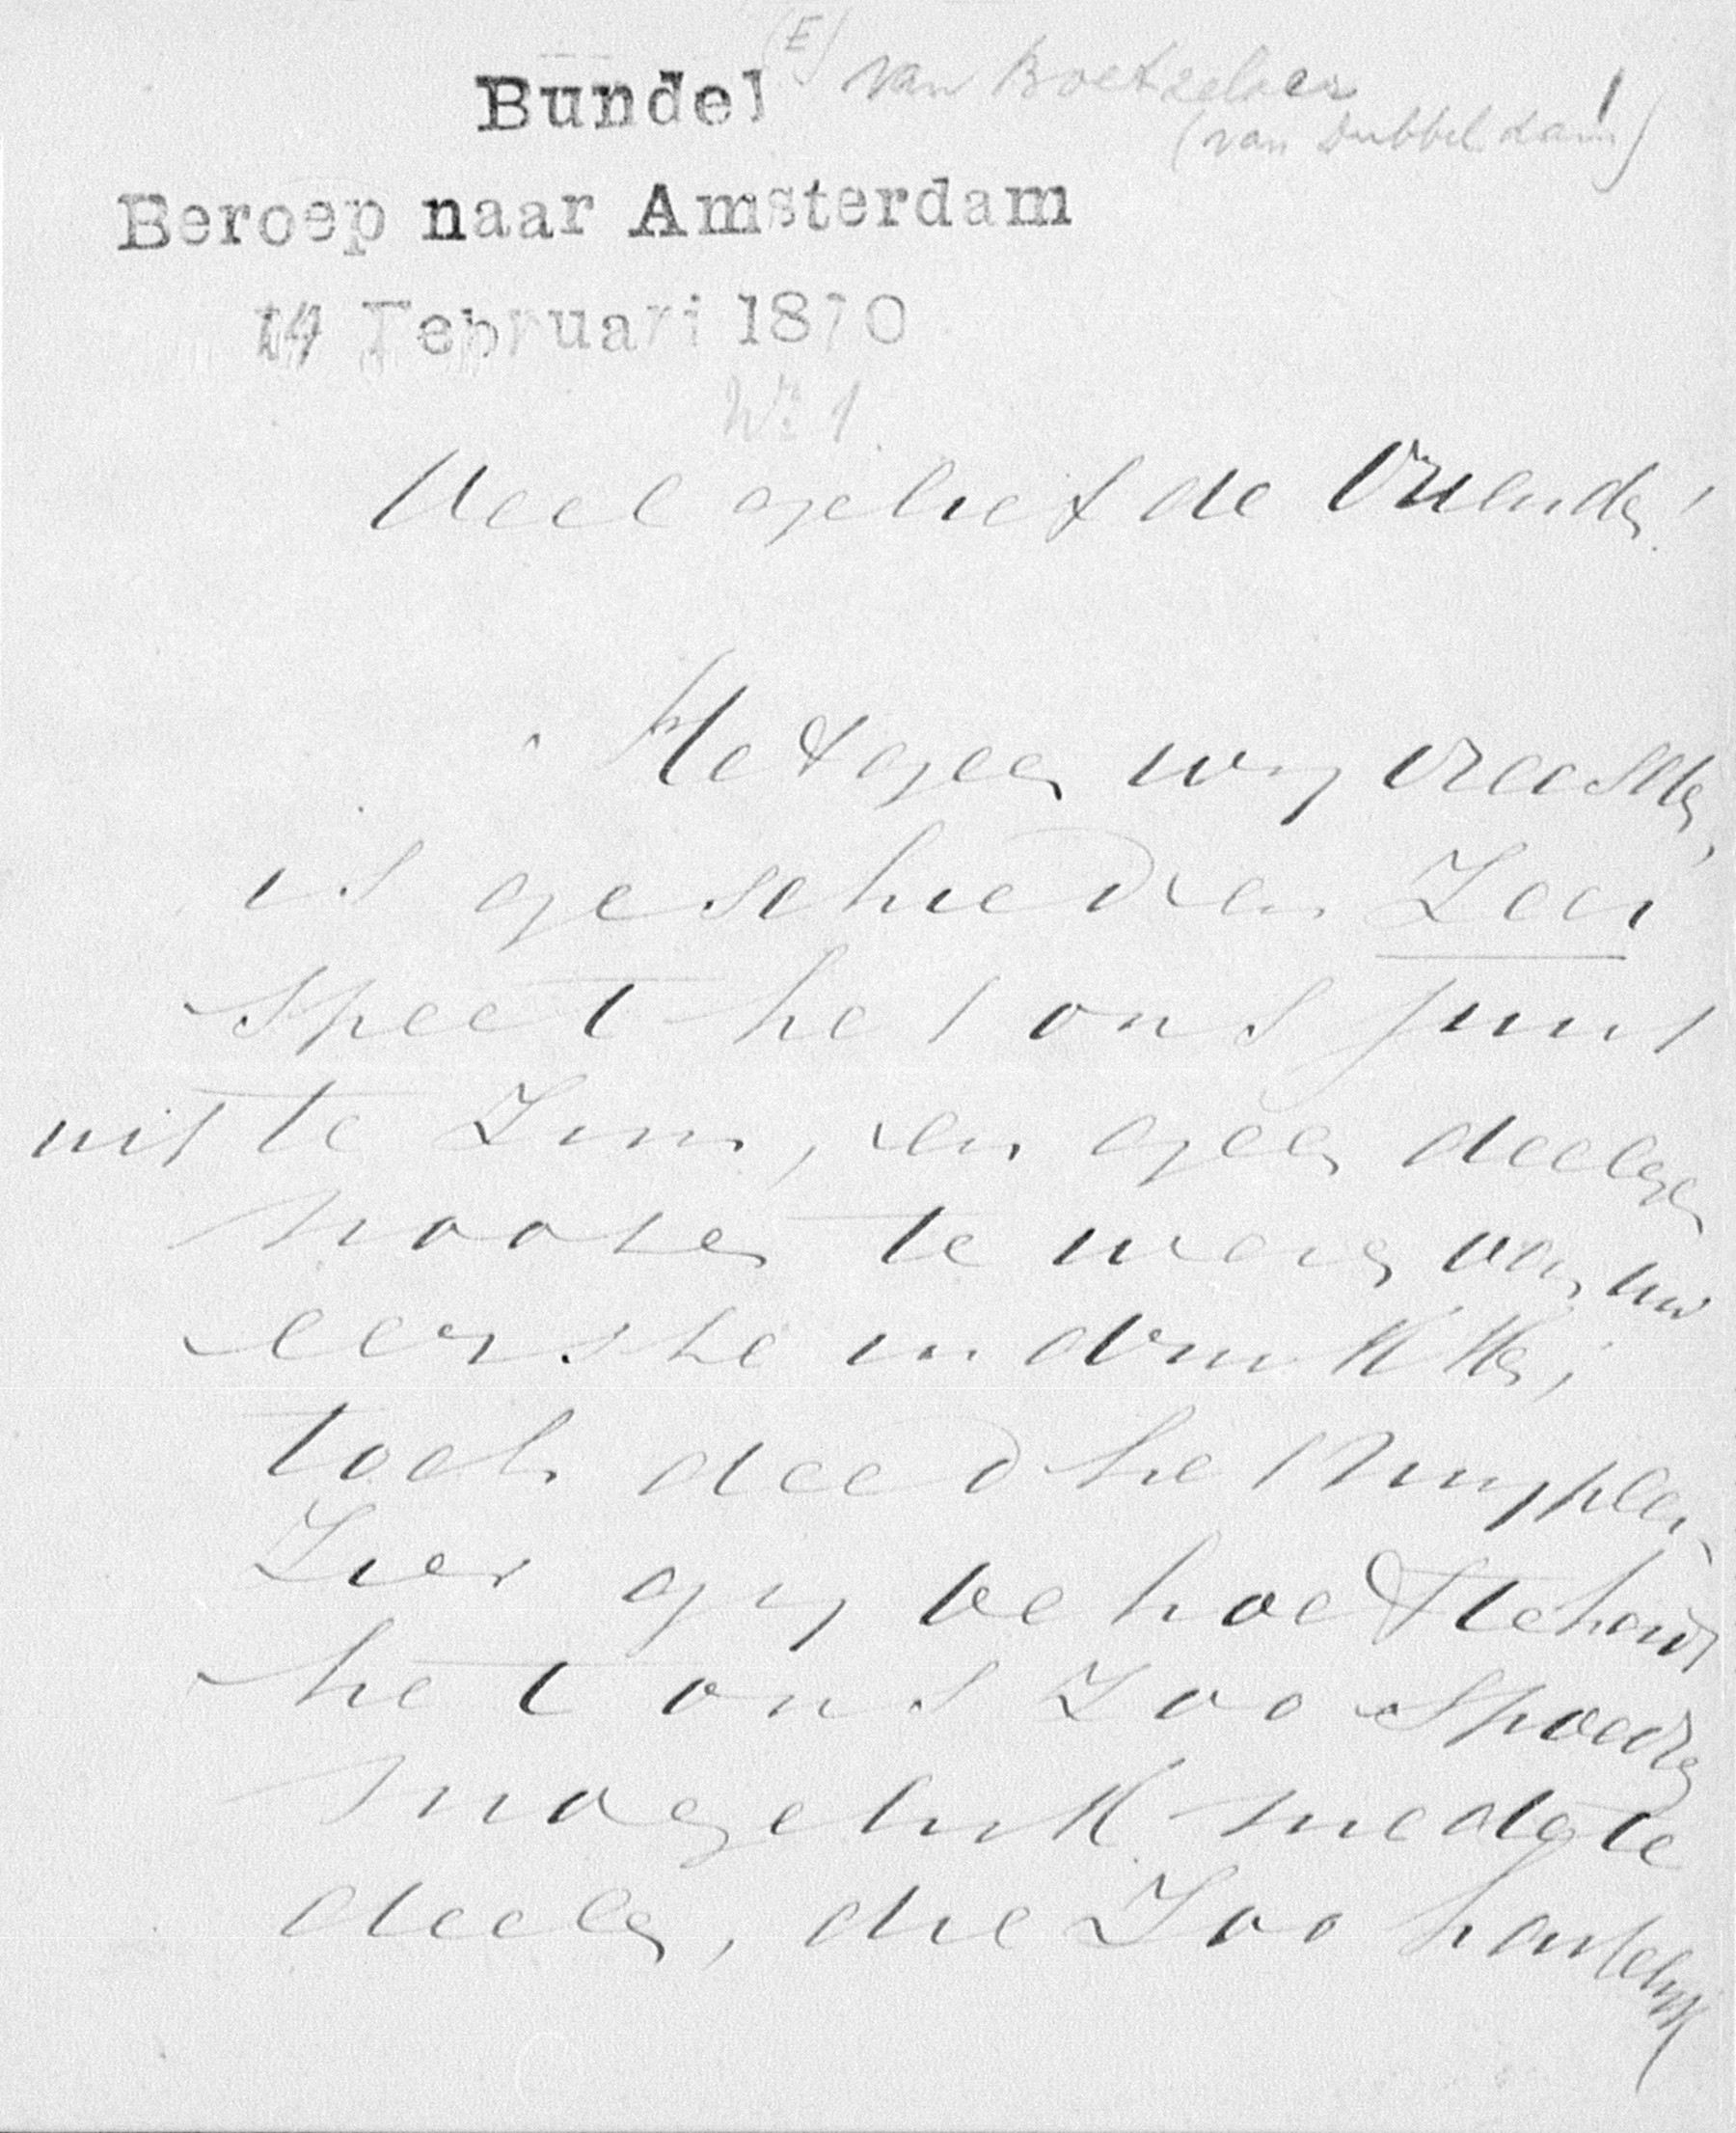 (E) van Boetzelaer
(van Dubbeldam)
1
Bundel
Beroep naar Amsterdam
14 Februari 1870
No 1.
Veel geliefde Vrienden!
Hetgeen wij vreesden,
is geschied en Zeer
speet het ons juist
uit te Zijn, en geen deelge
nooten te weze van uw
eerste indrukken;
toch deed het mij plei
Zier gij behoefte hadt
het ons Zoo spoedig
mogelijk mede te
deelen, die Zoo hartelijk